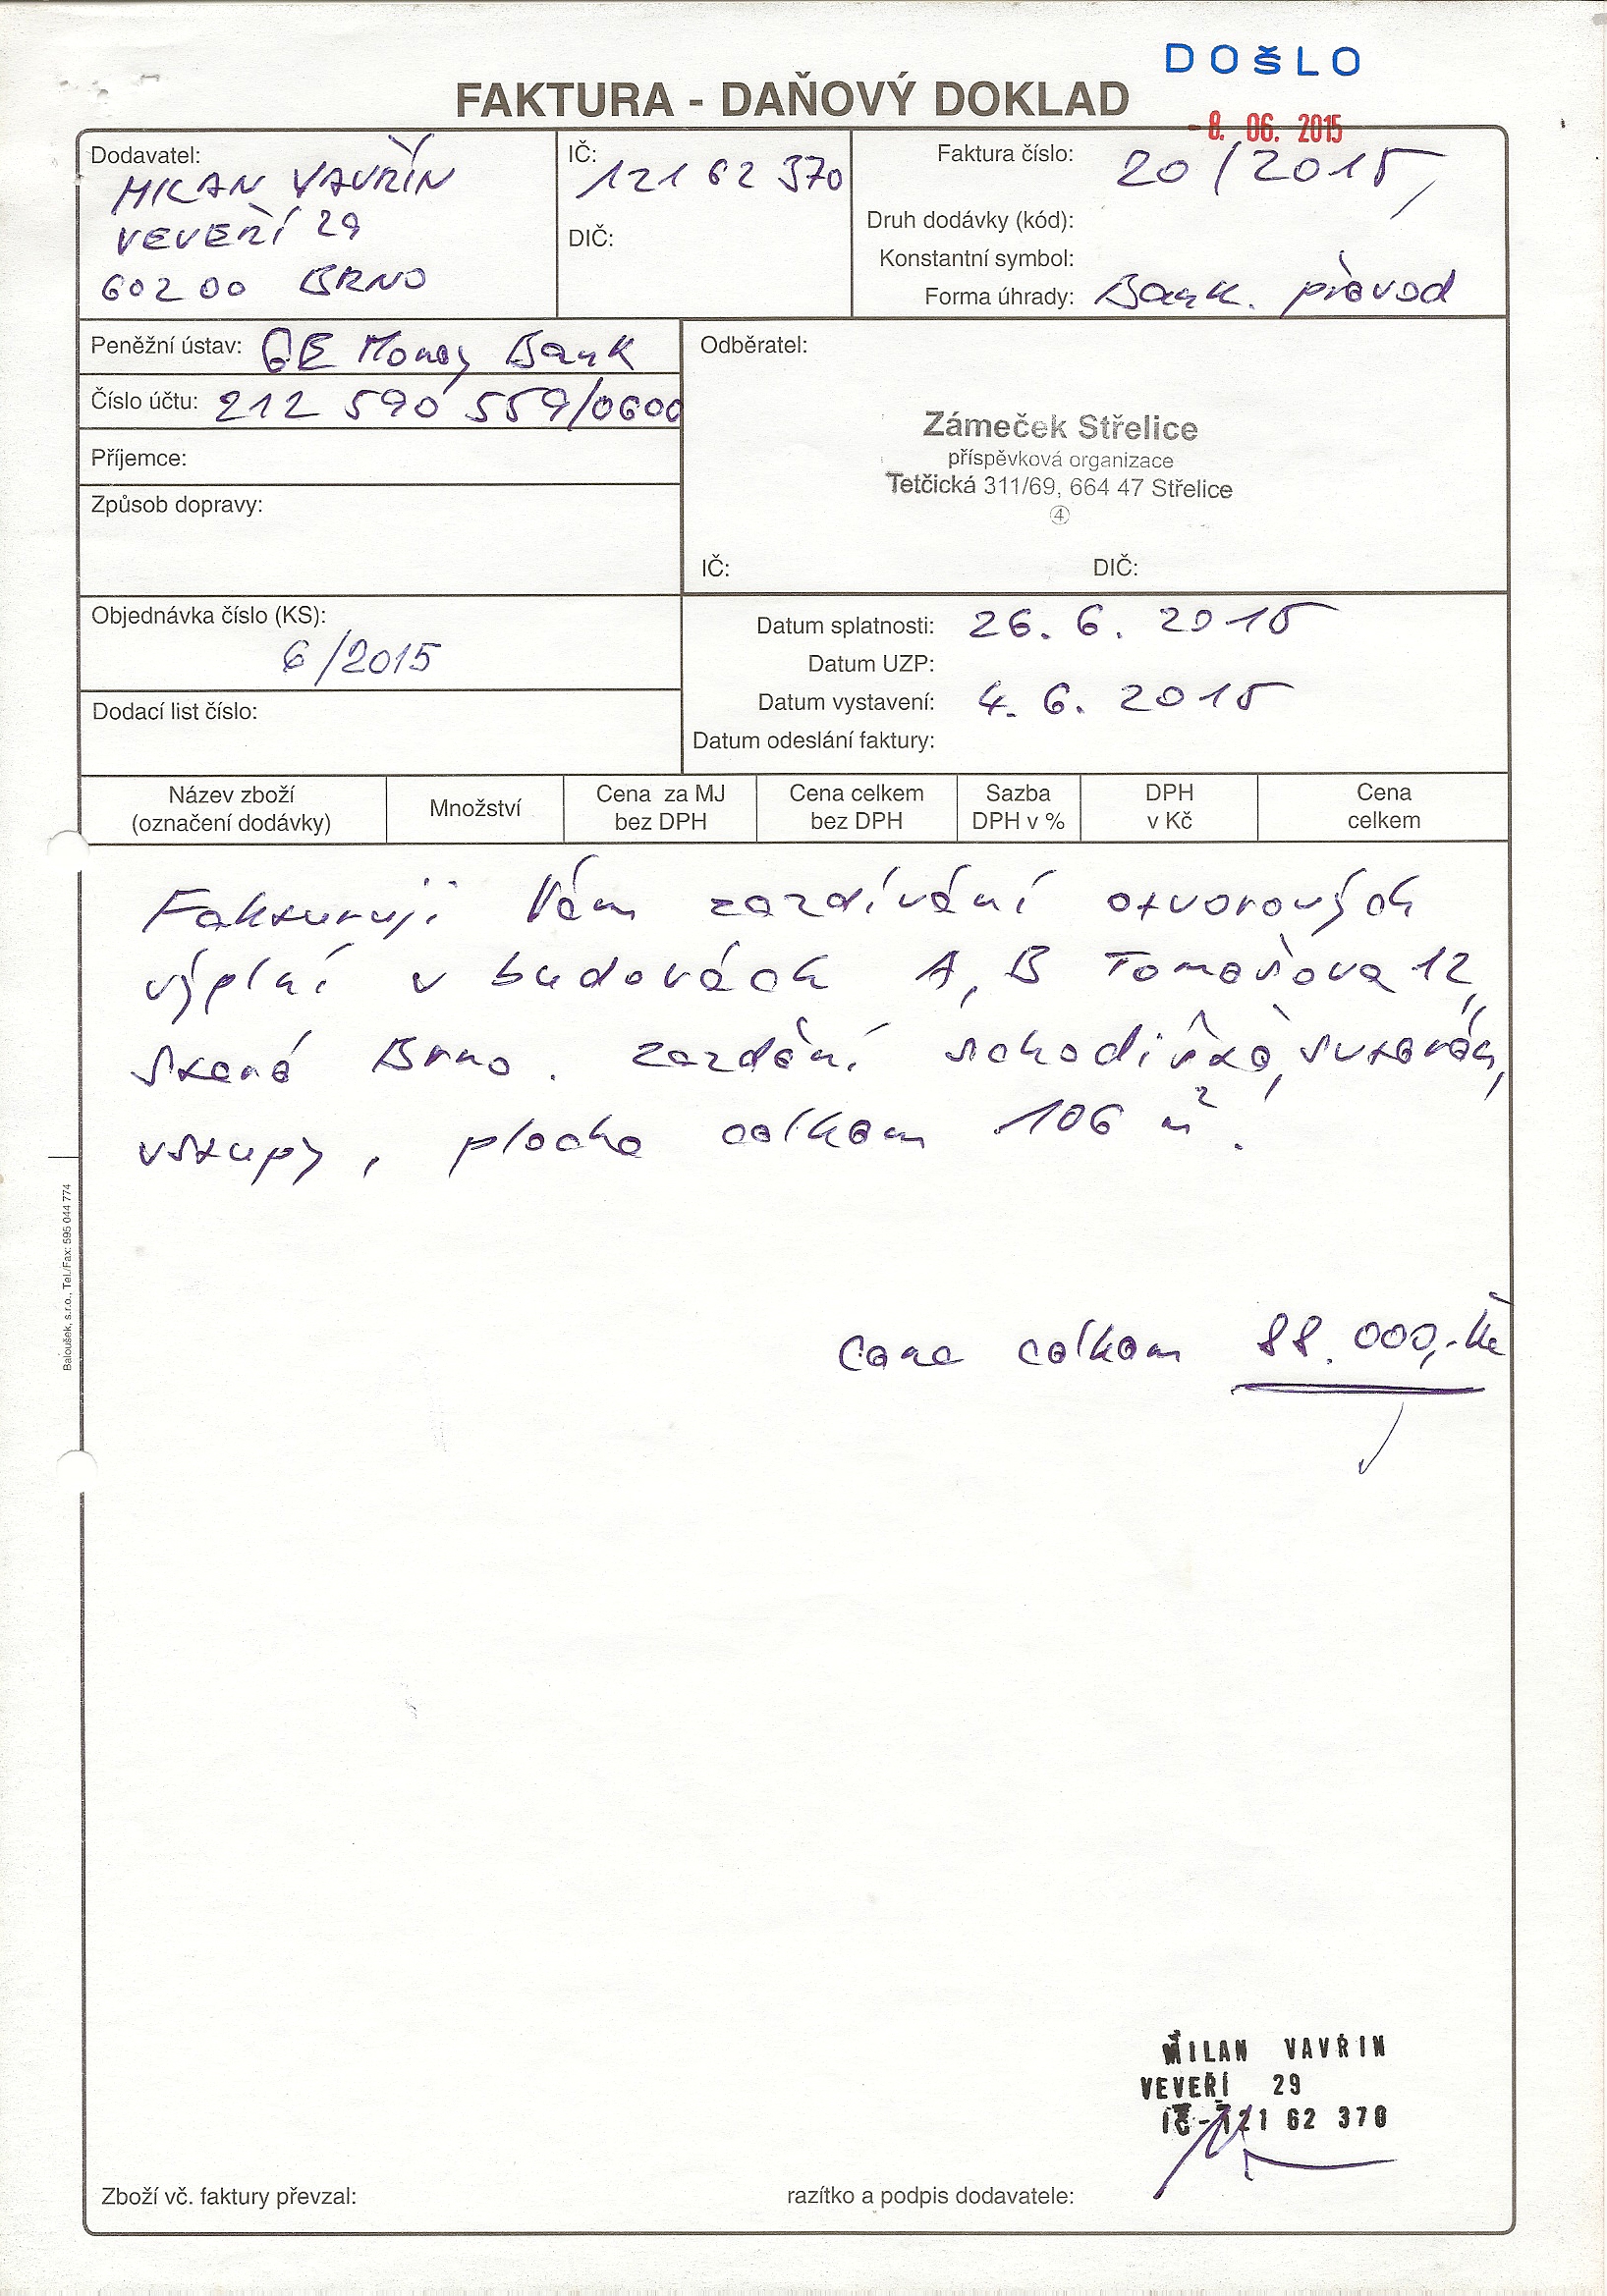 DOŠLO
FAKTURA - DAŇOVÝ DOKLAD
- 8. 06. 2015
Dodavatel:
MILAN VAVŘÍN
VEVEŘÍ 29
602 00 BRNO
IČ:
121 62 370
DIČ:
Faktura číslo: 20/2015
Druh dodávky (kód):
Konstantní symbol:
Forma úhrady: Bank. převod
Peněžní ústav: GE Money Bank
Číslo účtu: 212 590 559/0600
Příjemce:
Způsob dopravy:
Odběratel:
Zámeček Střelice
příspěvková organizace
Tetčická 311/69, 664 47 Střelice
4
IČ: DIČ:
Objednávka číslo (KS):
6/2015
Dodací list číslo:
Datum splatnosti: 26. 6. 2015
Datum UZP:
Datum vystavení: 4. 6. 2015
Datum odeslání faktury:
Název zboží
(označení dodávky)
Množství
Cena za MJ
bez DPH
Cena celkem
bez DPH
Sazba
DPH v %
DPH
v Kč
Cena
celkem
Fakturuji Vám zazdívání otvorových
výplní v budovách A, B Tomešova 12,
Staré Brno. Zazdění schodiště, sutarén,
vstupy, plocha celkem 106 m².
Cena celkem 88.000,-Kč
Baloušek, s.r.o., Tel./Fax: 595 044 774
MILAN VAVŘIN
VEVEŘÍ 29
IČ-121 62 370
Zboží vč. faktury převzal:
razítko a podpis dodavatele: